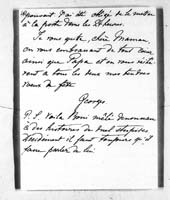 pouvait. J'ai été obligé de la mettre
à la poste dans les 24 heures.
Je vous quitte, chère Maman,
en vous embrassant de tout cœur
ainsi que Papa et en vous
tous les deux mes tendres
vœux de fête
George
P. S. Voilà Boni mêlé
à des histoires de stupides
Décidément il faut toujours qu'il
fasse parler de lui